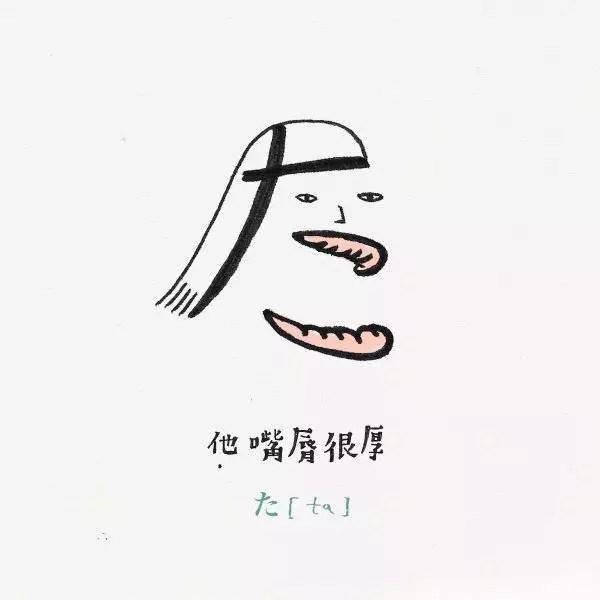 他嘴唇很厚
た[ta]